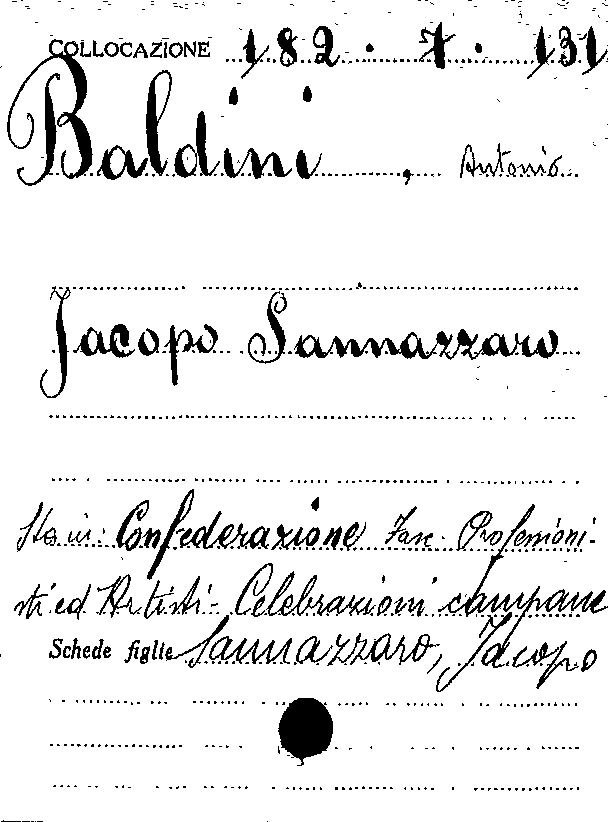 COLLOCAZIONE 182 . 7 . 131
Baldini , Antonio
Jacopo Sannazzaro
Sta in: Confederazione Fasc. Professioni-
sti ed Artisti - Celebrazioni campane
Schede figlie Sannazzaro, Jacopo